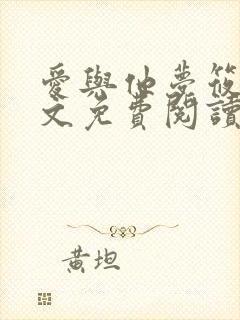 愛與他夢筱
文免費閱讀
黃坦